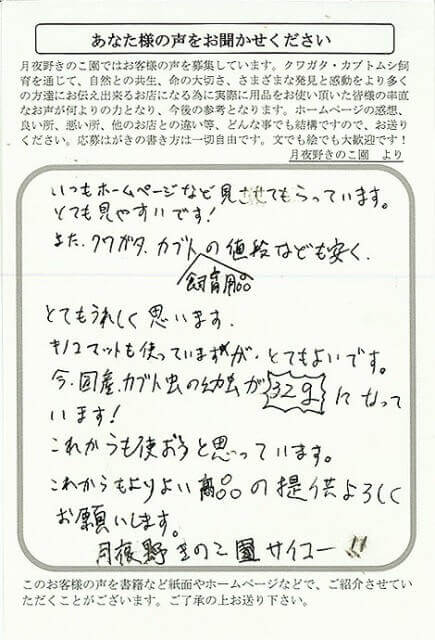 あなた様の声をお聞かせください
月夜野きのこ園ではお客様の声を募集しています。クワガタ・カブトムシ飼
育を通じて、自然との共生、命の大切さ、さまざまな発見と感動をより多く
の方達にお伝え出来るお店になる為に実際に用品をお使い頂いた皆様の率直
なお声が何よりの力となり、今後の参考となります。ホームページの感想、
良い所、悪い所、他のお店との違い等、どんな事でも結構ですので、お送り
ください。応募はがきの書き方は一切自由です。文でも絵でも大歓迎です！
月夜野きのこ園　より
いつもホームページなど見させてもらっています。
とても見やすいです！
また、クワガタ、カブトの値給なども安く、
飼育用品
とてもうれしく思います。
キノコマットも使っていますが、とてもよいです。
今、国産カブト虫の幼虫が32gになって
います！
これからも使おうと思っています。
これからもよりよい商品の提供よろしく
お願いします。
月夜野きのこ園サイコー!!
このお客様の声を書籍など紙面やホームページなどで、ご紹介させてい
ただくことがございます。ご了承の上お送り下さい。